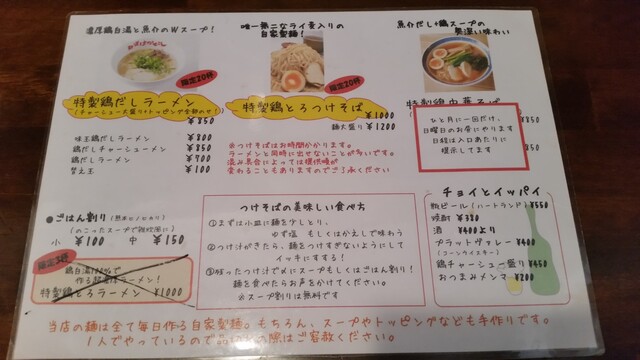 濃厚鶏白湯と魚介のWスープ!
限定20杯
特製鶏だしラーメン
(チャーシュー大盛り+トッピング全部のせ!)
¥850
味玉鶏だしラーメン ¥800
鶏だしチャーシューメン ¥850
鶏だしラーメン ¥700
替え玉 ¥100
唯一無二なライ麦入りの
自家製麺!
限定20杯
特製鶏とろつけそば
¥1000
麺大盛り¥1200
※つけそばはお時間かかります。
ラーメンと同時に出せないことが多いです。
混み具合によっては提供順が
変わることもありますのでご了承ください
魚介だし+鶏スープの
奥深い味わい
ひと月に一回だけ、
日曜日のお昼にやります
日程は入口あたりに
掲示してます
¥850
●ごはん割り(熊本ヒノヒカリ)
(のこったスープで雑炊風に)
小 ¥100 中 ¥150
限定3杯
鶏白湯100%で
作る超濃厚ラーメン!
特製鶏とろラーメン ¥1000
つけそばの美味しい食べ方
①まずは小皿に麺を少しとり、
ゆず塩 もしくはかえしで味わう
②つけ汁がきたら、麺をつけすぎないようにして
イッキにすする!
③残ったつけ汁で〆にスープもしくはごはん割り!
麺を食べたらお声をかけてください。
※スープ割りは無料です
チョイとイッパイ
瓶ビール(ハートランド)¥550
焼酎 ¥320
酒 ¥400より
プラットヴァレー ¥400
(コーンウイスキー)
鶏チャーシュー盛り ¥450
おつまみメンマ ¥200
当店の麺は全て毎日作る自家製麺。もちろん、スープやトッピングなども手作りです。
1人でやっているので品切れの際はご容赦ください。